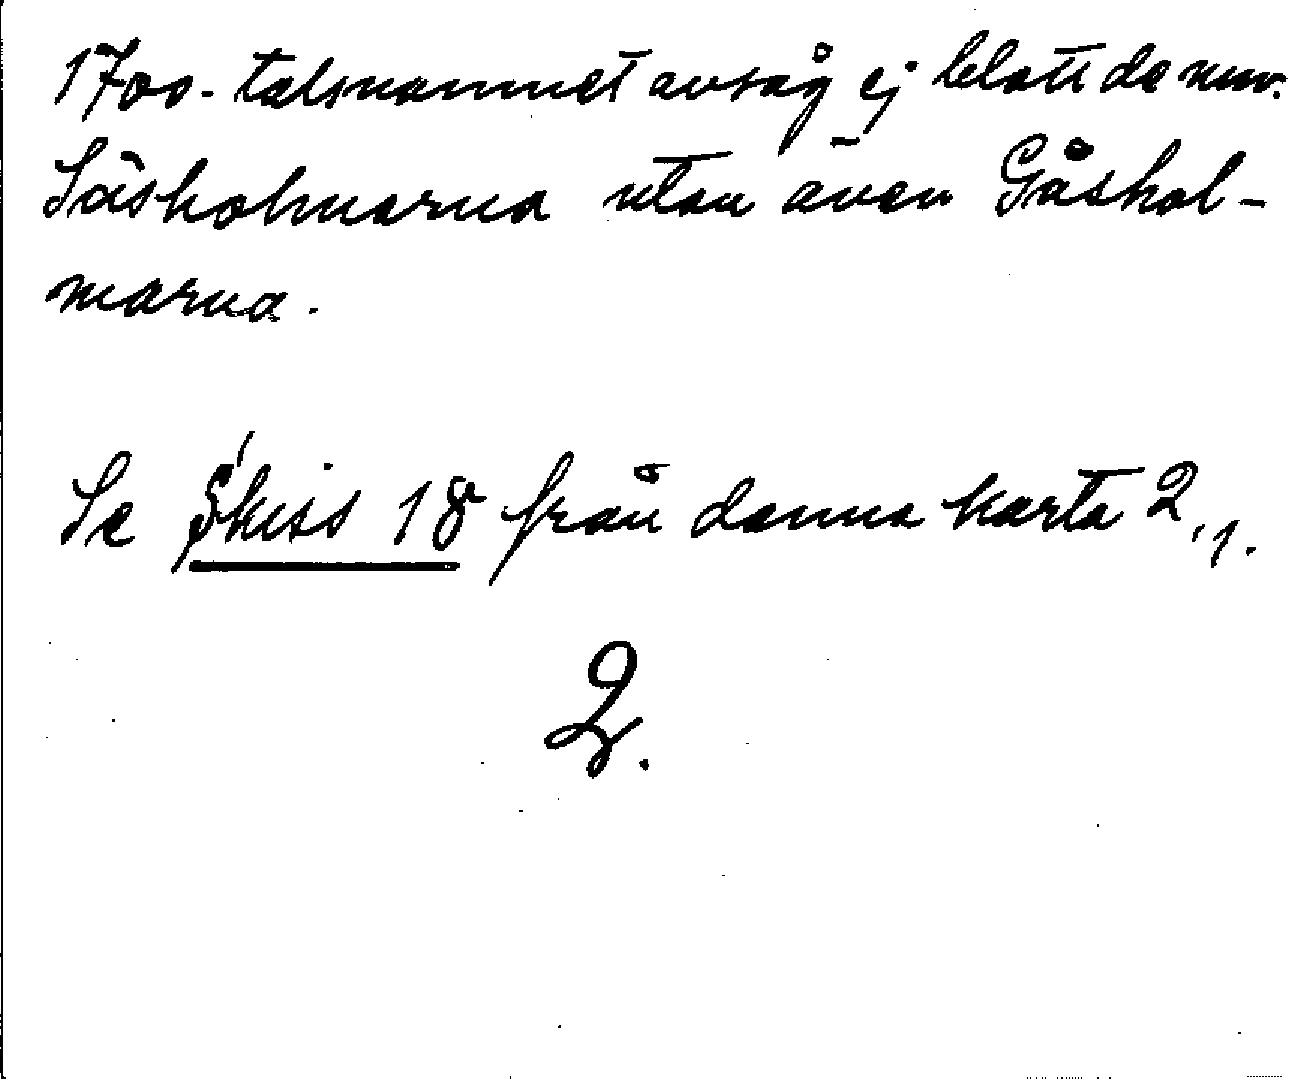 1700-talsnamnet avsåg ej blott de nuv.
Säsholmarna utan även Gåshol-
marna.
Se Skiss 18 från denna karta 2,1.
2.